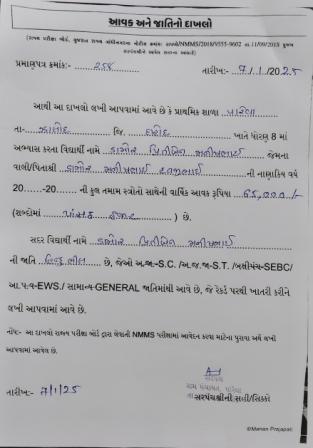 આવક અને જાતિનો દાખલો
(રાજ્ય પરીક્ષા બોર્ડ, ગુજરાત રાજ્ય ગાંધીનગરના નોટિસ ક્રમાંક: રાપબો/NMMS/2018/9555-9602 તા.11/09/2018 મુજબ
સરપંચશ્રીએ આપેલ હોવાના આધારે)
પ્રમાણપત્ર ક્રમાંક:- 258 તારીખ:- 7/1/2025
આથી આ દાખલો લખી આપવામાં આવે છે કે પ્રાથમિક શાળા
તા- ઝાલોદ જિ. દાહોદ ખાતે ધોરણ 8 માં
અભ્યાસ કરતા વિદ્યાર્થી નામે ડામોર જેમના
વાલી/પિતાશ્રી ડામોર ની નાણાકિય વર્ષ
20......-20...... ની કુલ તમામ સ્ત્રોતો સાથેની વાર્ષિક આવક રૂપિયા 65,000/-
(શબ્દોમાં પાંસઠ હજાર ) છે.
સદર વિદ્યાર્થી નામે ડામોર
ની જાતિ હિન્દુ ભીલ છે, જેઓ અ.જા-S.C. /અ.જ.જા-S.T. /બક્ષીપંચ-SEBC/
આ.પ.વ-EWS./ સામાન્ય-GENERAL જાતિમાંથી આવે છે, જે રેકર્ડ પરથી ખાતરી કરીને
લખી આપવામાં આવે છે.
નોંધ:- આ દાખલો રાજ્ય પરીક્ષા બોર્ડ દ્વારા લેવાની NMMS પરીક્ષામાં આવેદન કરવા માટેના પુરાવા અર્થે લખી
આપવામાં આવેલ છે.
સરપંચ
ગ્રામ પંચાયત,
તારીખ:- 7/1/25 સરપંચશ્રીની સહી/સિક્કો
©Manan Prajapati